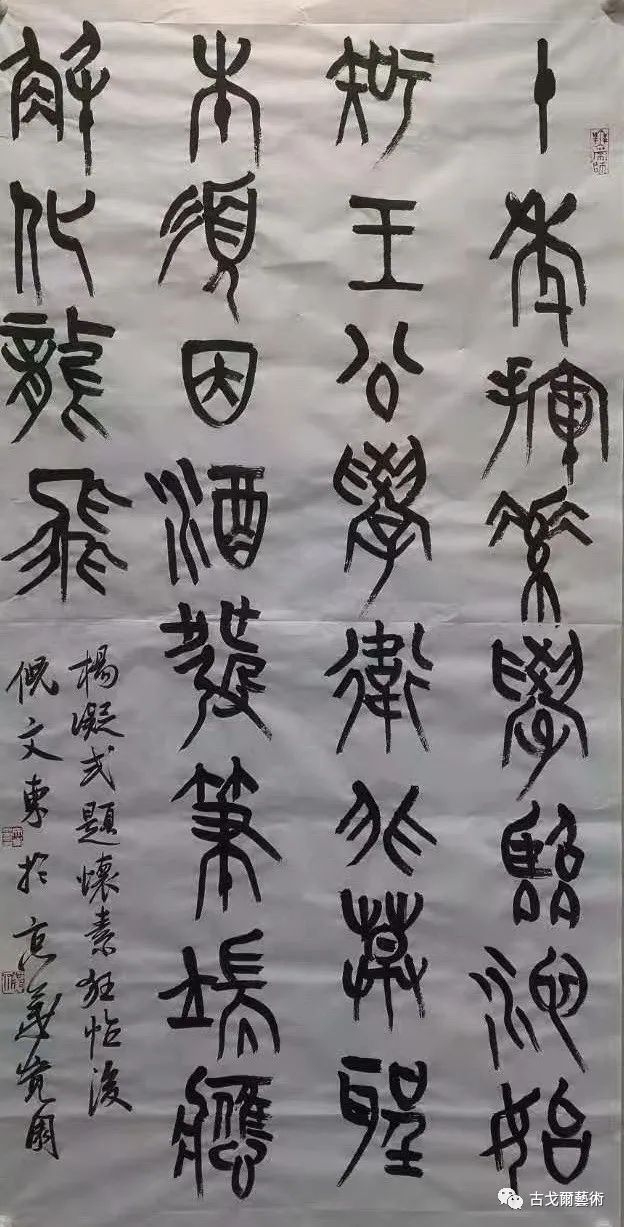 十年揮素學臨池始
知王公學衛非草聖
未須因酒發筆端應
解化龍飛
楊凝式題懷素狂帖後
倪文東於京華園
古戈爾藝術